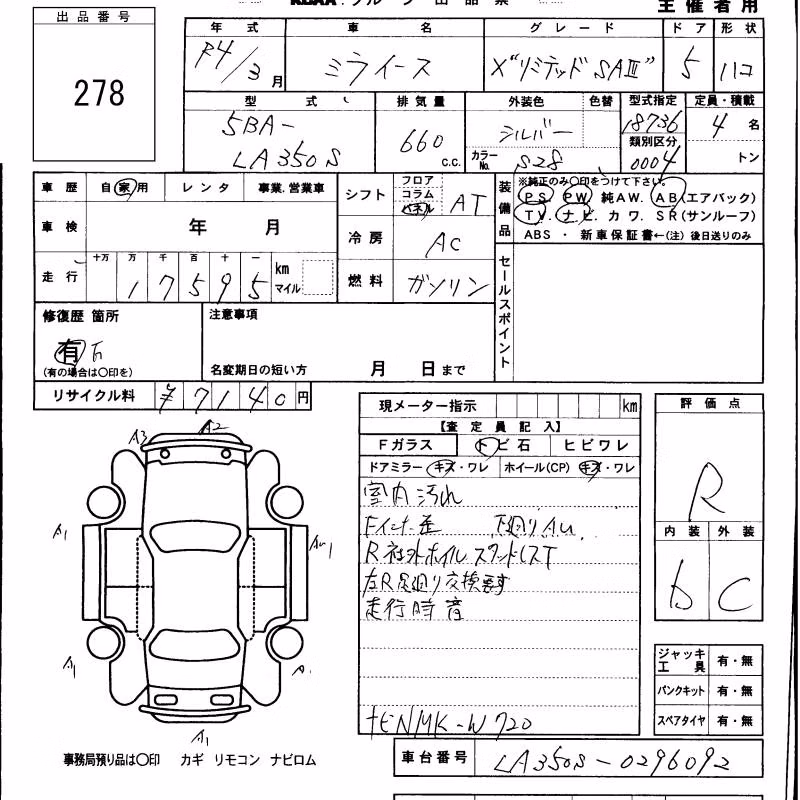 出品番号
278
主催者用
年式 車名 グレード ドア 形状
R4/3月 ミライース X"リミテッドSAⅢ" 5 ハコ
型式 排気量 外装色 色替 型式指定 定員・積載
5BA-
LA350S 660 c.c. シルバー 18736 4名
類別区分
カラーNo. S28 0004 トン
車歴 自家用 レンタ 事業.営業車
シフト フロア コラム パネル AT
装備品 ※純正のみ○印をつけて下さい。
PS PW 純AW. AB(エアバック)
TV. ナビ. カワ. SR(サンルーフ)
ABS ・ 新車保証書←(注) 後日送りのみ
車検 年 月
冷房 AC
走行 十万 万 千 百 十 一
17595 km マイル
燃料 ガソリン
セールスポイント
修復歴 箇所
有
(有の場合は○印を)
注意事項
名変期日の短い方 月 日まで
リサイクル料 ¥7140円
現メーター指示 km
【査定員記入】
Fガラス トビ石 ヒビワレ
ドアミラー キズ・ワレ ホイール(CP) キズ・ワレ
室内汚れ
下廻りAu
R社外ホイル スタットレスT
左R足廻り交換要す
走行時音
tENMK-W720
評価点
R
内装 外装
b C
ジャッキ工具 有・無
パンクキット 有・無
スペアタイヤ 有・無
A3 A2
A1 Au1
A1
A1
事務局預り品は○印 カギ リモコン ナビロム
車台番号 LA350S-0296092